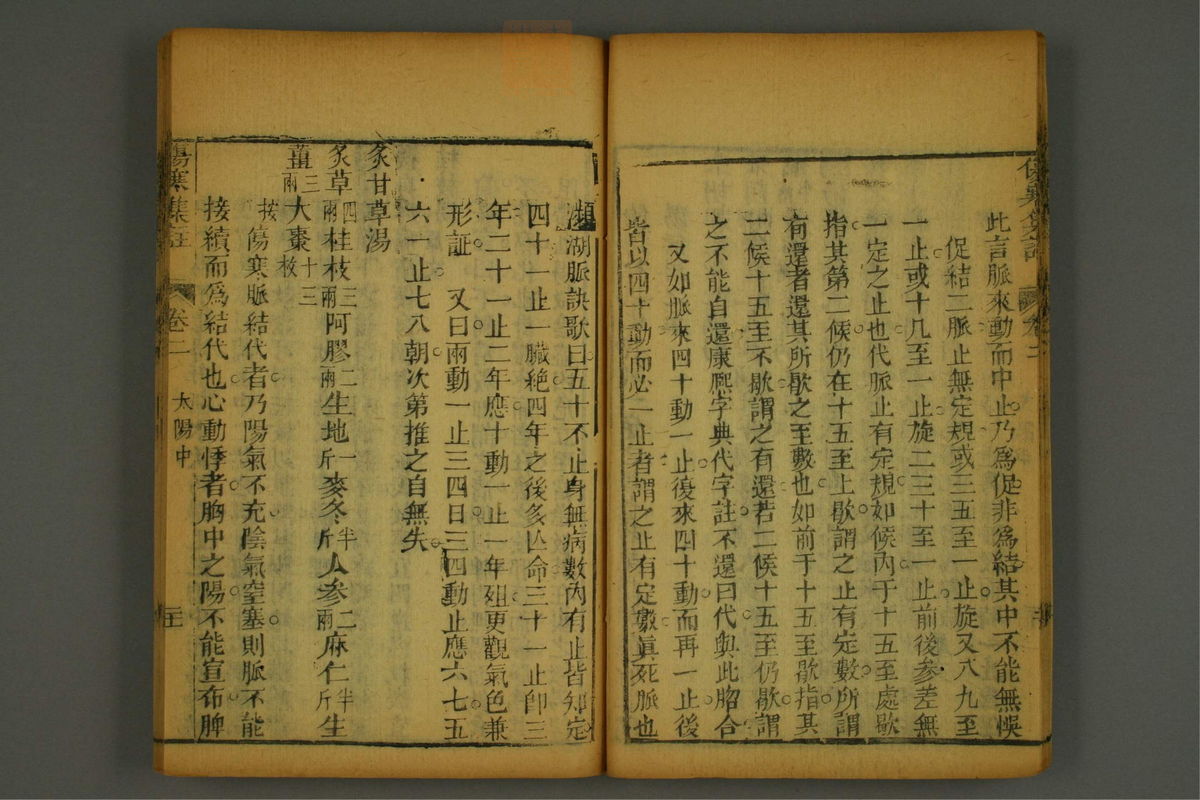 此言脈來動而中止乃為促非為結其中不能無悞
促結二脈止無定規或三五至一止旋又八九至
一止或十几至一止旋二三十至一止前後參差無
一定之止也代脈止有定規如候內于十五至處歇
指其第二候仍在十五至上歇謂之止有定數所謂
有還者還其所歇之至數也如前于十五至歇指其
二候十五至不歇謂之有還若二候十五至仍歇謂
之不能自還康熈字典代字註不還曰代與此脗合
又如脈來四十動一止復來四十動而再一止後
皆以四十動而必一止者謂之止有定數真死脈也
傷寒集註
卷二
瀕湖脈訣歌曰五十不止身無病數內有止皆知定
四十一止一臟絕四年之後多亾命三十一止即三
年二十一止二年應十動一止一年殂更觀氣色兼
形証 又曰兩動一止三四日三四動止應六七五
六一止七八朝次第推之自無失
炙甘草湯
炙草四兩桂枝三兩阿膠二兩生地一斤麥冬半斤人參二兩麻仁半斤生
薑三兩大棗十三枚
按傷寒脈結代者乃陽氣不充陰氣窒塞則脈不能
接續而為結代也心動悸者胸中之陽不能宣布脾
傷寒集註
卷二
太陽中